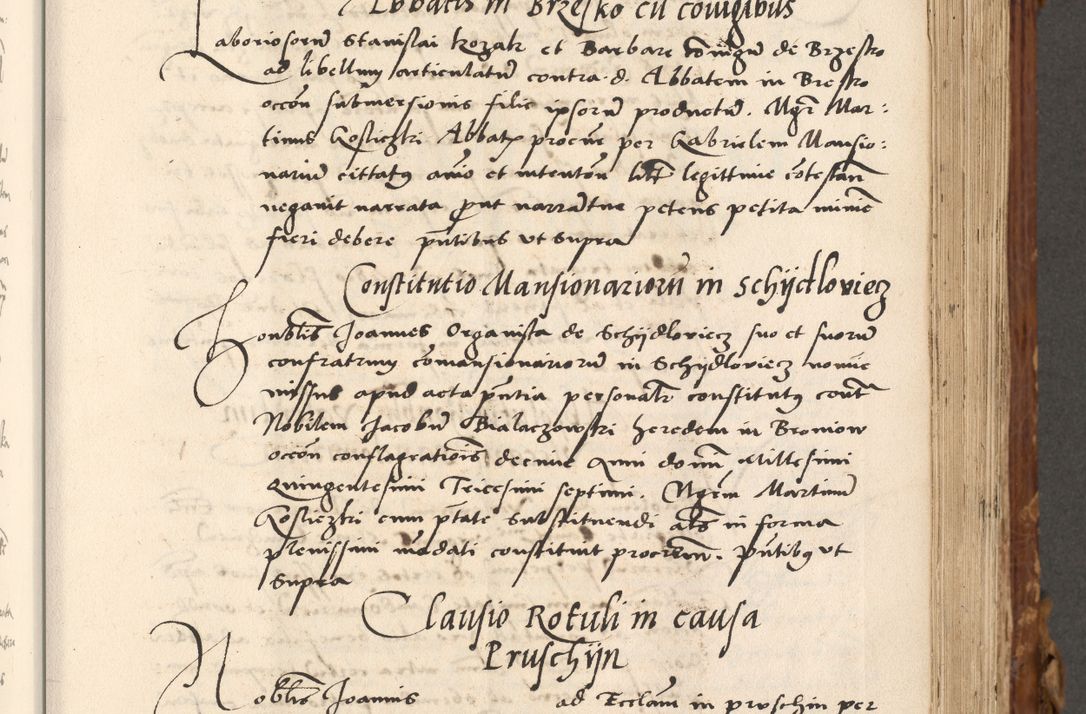 Abbatis in Brzesko cū coniugibus
Laboriosorū Stanislai Kozak et Barbare coniugū de Brzesko
ad libellum articulatū contra d. Abbatem in Bresko
occōn submersionis filie ipsorū productū. Mgr̄ Mar:
tinus Kosliczki Abbatꝭ procūr per Gabrielem Mansio:
nariū cittatꝯ anīo et intentōn litē legittime cōtestan̄
negavit narrata ꝓut narrāntur petens petita minīe
fieri debere pn̄tibus ut supra
Constitutio Mansionariorū in Schijdloviecz
Honōblis Joannes Organista de Schijdloviecz suo et suorū
confratrum cōmansionariorū in Schijdloviecz nomīe
missus apud acta pn̄tia personalr̄ constitutꝯ contr̄
Nobilem Jacobū Bialaczowski heredem in Bromow
occōn conflagratiōis decime Anni domī Millesimi
Quingentesimi Tricesimi septimi. Mgr̄m Martinū
Kosliczki cum ptāte substituendi ał̄s in forma
plenissimi mādati constituit procr̄em. Pn̄tibꝯ ut
supra
Clausio Rotuli in causa
Pruschijn
Noblīs Joannis ad Ecclām in pruschin per